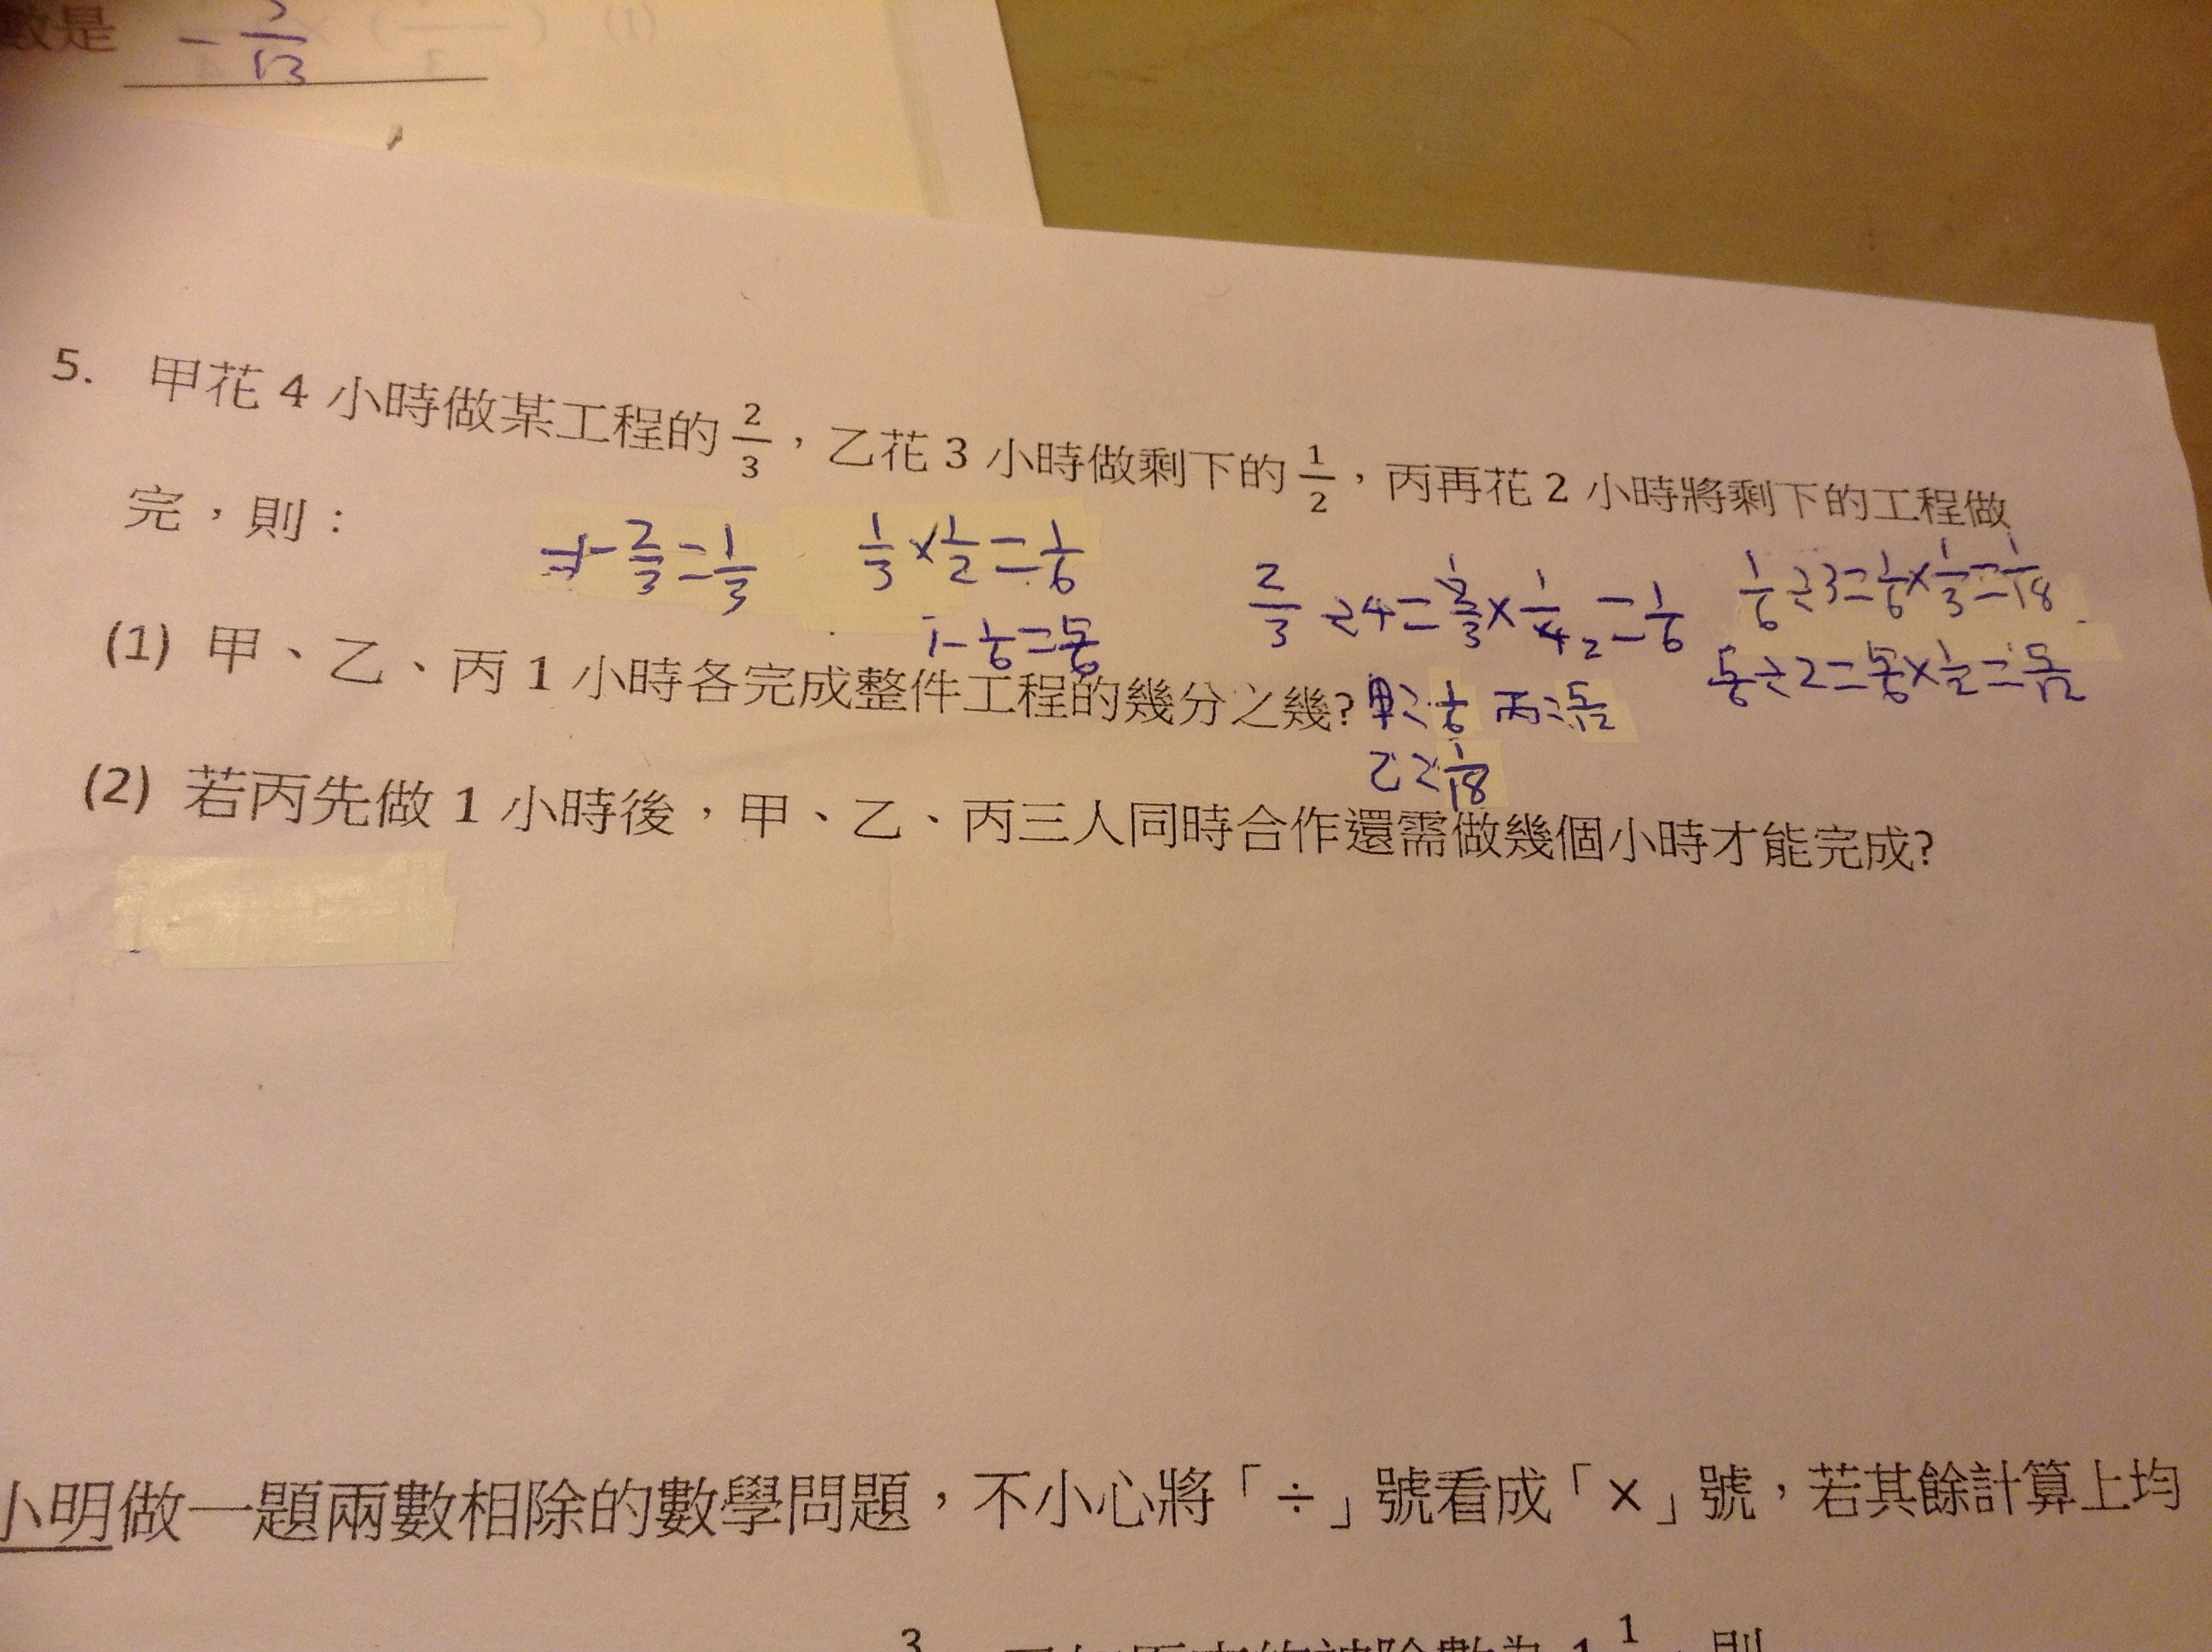 數是 -2/13
5. 甲花 4 小時做某工程的 2/3，乙花 3 小時做剩下的 1/2，丙再花 2 小時將剩下的工程做
完，則：
1-2/3=1/3 1/3×1/2=1/6
1-1/6=5/6
2/3÷4=2/3×1/4=1/6
1/6÷3=1/6×1/3=1/18
5/6÷2=5/6×1/2=5/12
(1) 甲、乙、丙 1 小時各完成整件工程的幾分之幾? 甲：1/6 丙：5/12
乙：1/18
(2) 若丙先做 1 小時後，甲、乙、丙三人同時合作還需做幾個小時才能完成?
小明做一題兩數相除的數學問題，不小心將「÷」號看成「×」號，若其餘計算上均